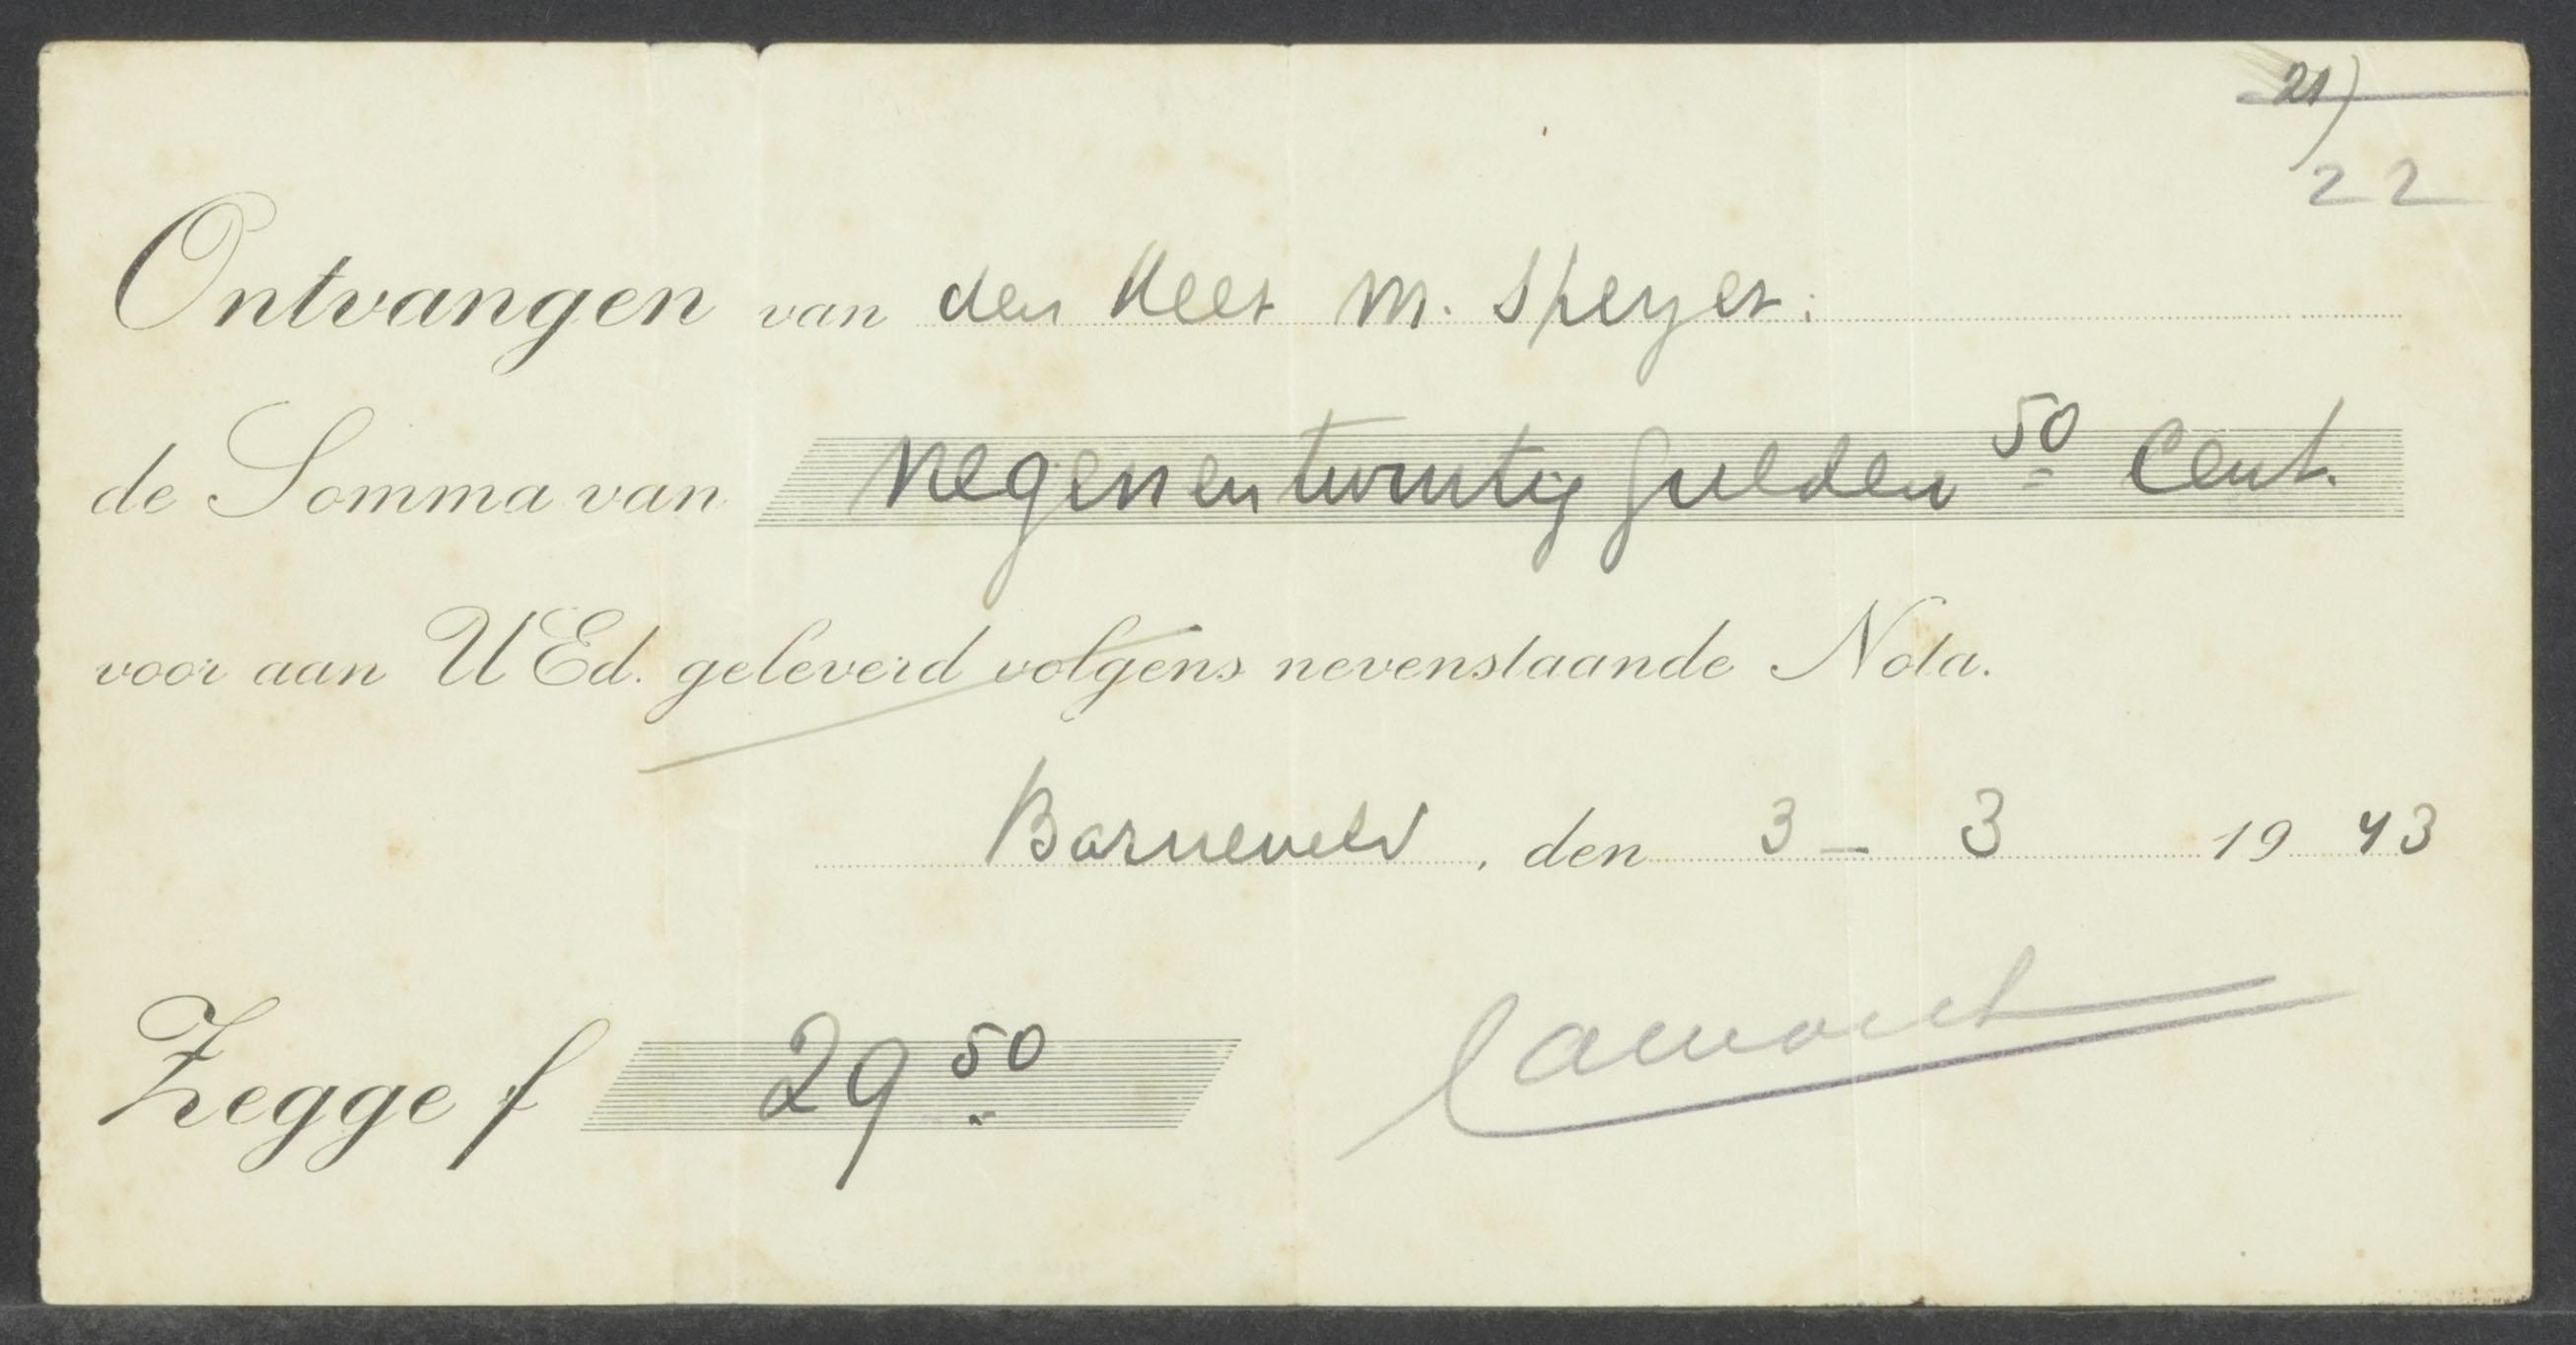 21)
22
Ontvangen van den Heer M. Speyer.
de Somma van Negenentwintig gulden 50 Cent.
voor aan UEd. geleverd volgens nevenstaande Nota.
Barneveld, den 3 - 3 1943
Zegge f 29 50